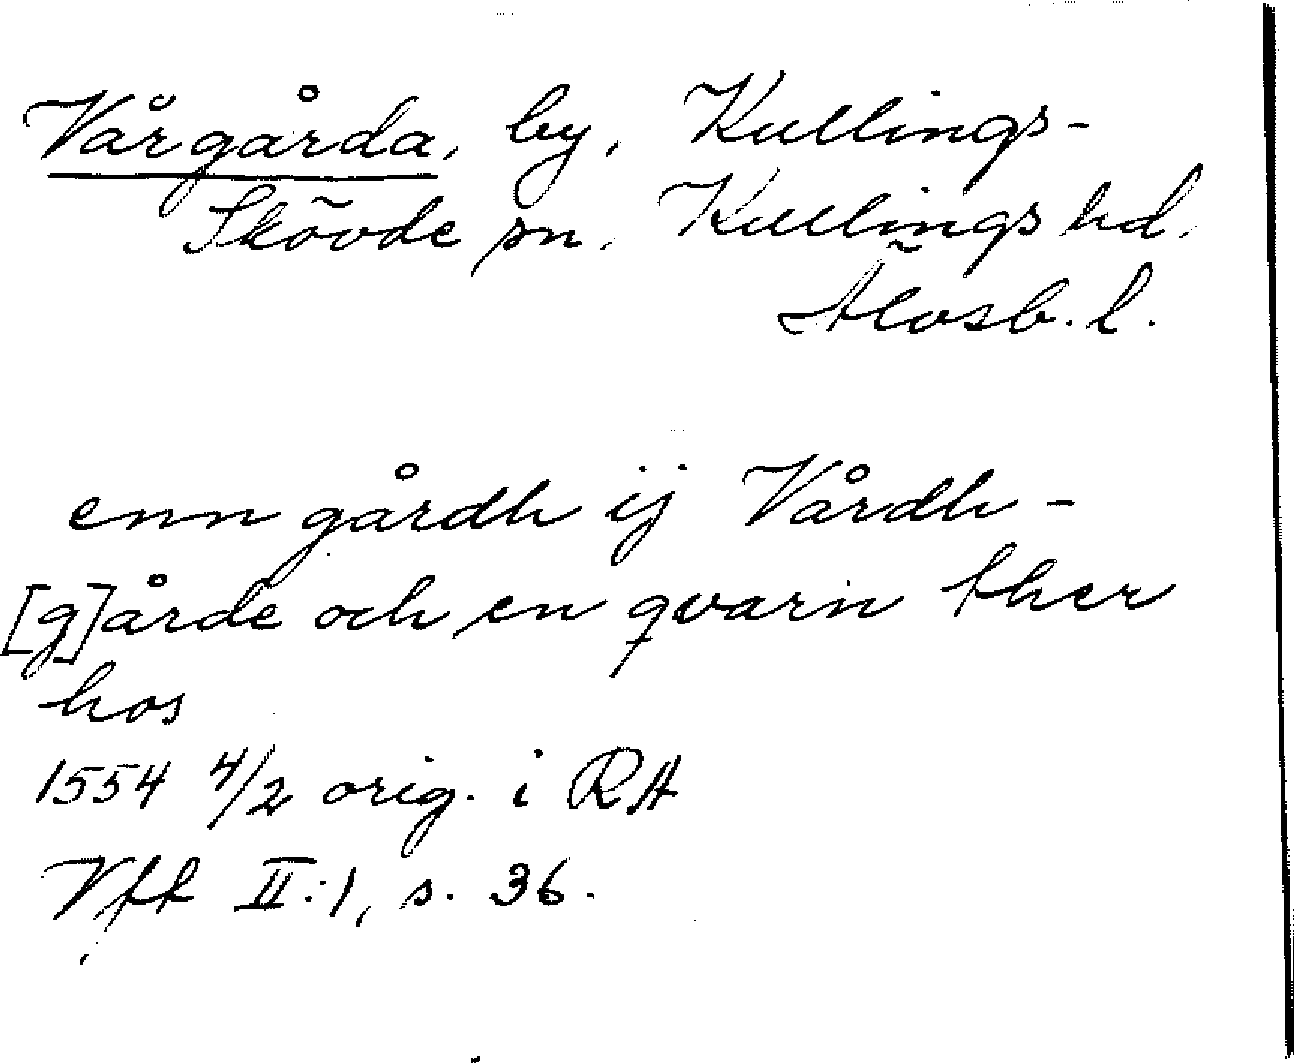 Vårgårda, by, Kullings-
Skövde sn, Kullings hd,
Älvsb. l.
enn gårdh ij Vårdh-
[g]årde och en qvarn ther
hos
1554 4/2 orig. i RA
Vff II:1, s. 36.